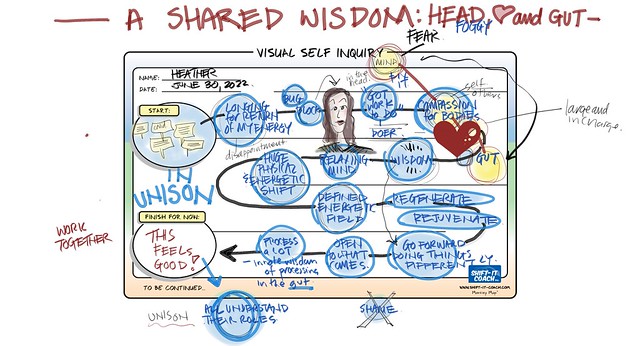 A SHARED WISDOM: HEAD and GUT
FOGGY
FEAR
VISUAL SELF INQUIRY
MIND
NAME: HEATHER
DATE: JUNE 30, 2022
in the head
START:
LONGING
for RETURN
OF MY ENERGY
BUG
"GOT
WORK to
DO"
DOER
COMPASSION
for BODIES
self
others
large and
in charge.
disappointment
IN
UNISON
HUGE
PHYSICAL
& ENERGETIC
SHIFT
RELAXING
MIND
WISDOM
GUT
DEFINED
ENERGETIC
FIELD
REGENERATE
REJUVENATE
WORK
TOGETHER
FINISH FOR NOW:
THIS
FEELS
GOOD!
PROCESS
A LOT
- innate wisdom
of processing
in the gut
OPEN
TO WHAT
COMES
GO FORWARD
DOING THINGS
DIFFERENTLY.
SHIFT-IT
COACH
TO BE CONTINUED...
WWW.SHIFT-IT-COACH.COM
Murray Map
UNISON
ALL UNDERSTAND
THEIR ROLES
SHAME